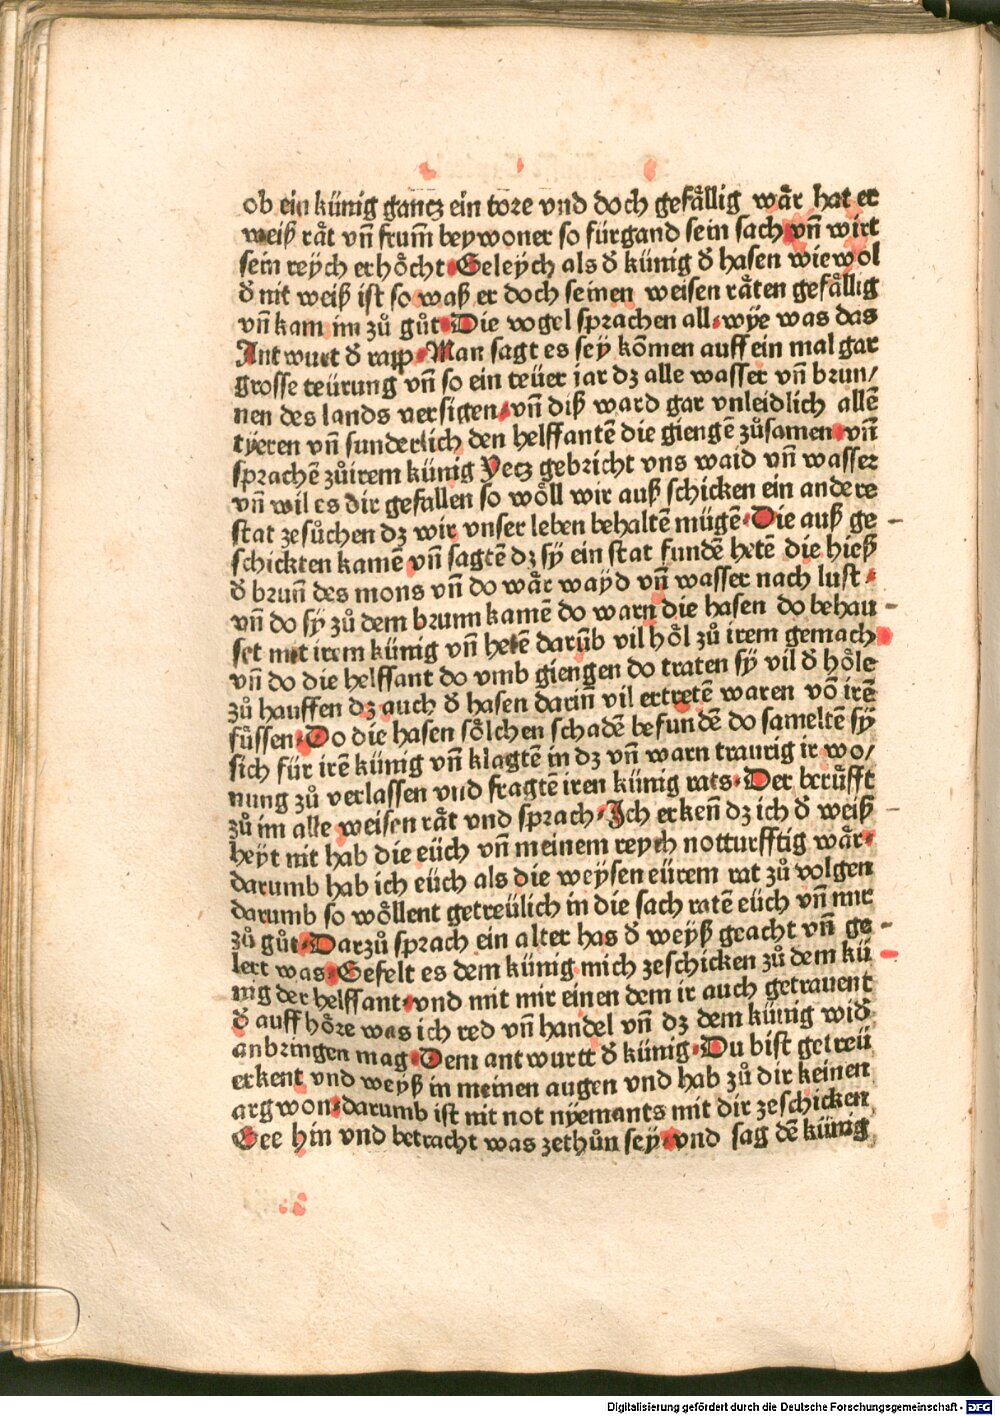 ob ein künig gantz ein tore vnd doch gefåͤllig wåͤr hat er
weiß råͤt vñ frum̃ beywoner so fürgand sein sach vñ wirt
sein reÿch erhoͤcht·Geleÿch als đ künig đ hasen wiewol
đ nit weiß ist so waß er doch seinen weisen raͤten gefaͤllig
vñ kam im zů gůt·Die vogel sprachen all·wÿe was das
Antwurt đ rapp·Man sagt es seÿ kõmen auff ein mal gar
grosse teürung vñ so ein teüer iar dz alle wasser vñ brun/
nen des lands versigen·vñ diß ward gar vnleidlich allẽ
tÿeren vñ sunderlich den helffantẽ die giengẽ zůsamen·vñ
sprachẽ zůirem künig Yetz gebricht vns waid vñ wasser
vñ wil es dir gefallen so woͤll wir auß schicken ein andere
stat zesůchen dz wir vnser leben behaltẽ mügẽ·Die auß ge
schickten kamẽ vñ sagtẽ dz sÿ ein stat fundẽ hetẽ die hieß
đ brun̄ des mons vñ do waͤr waÿd vñ wasser nach lust·
vñ do sÿ zů dem brunn kamẽ do warn die hasen do behau
set mit irem künig vñ hetẽ darũb vil hoͤl zů irem gemach
vñ do die helffant do vmb giengen do traten sÿ vil đ hoͤle
zů hauffen dz auch đ hasen darin̄ vil ertretẽ waren võ irẽ
füssen·Do die hasen soͤlchen schadẽ befundẽ do sameltẽ sÿ
sich für irẽ künig vñ klagtẽ in dz vñ warn traurig ir wo/
nung zů verlassen vnd fragtẽ iren künig rats·Der berůfft
zů im alle weisen raͤt vnd sprach·Ich erken̄ dz ich đ weiß
heÿt nit hab die eüch vñ meinem reych notturfftig waͤr·
darumb hab ich eüch als die weÿsen eürem rat zů volgen
darumb so woͤllent getreülich in die sach ratẽ eüch vñ mir
zů gůt·Darzů sprach ein alter has đ weÿß geacht vñ ge
lert was·Gefelt es dem künig mich zeschicken zů dem kü
nig der helffant·vnd mit mir einen dem ir auch getrauent
đ auff hoͤre was ich red vñ handel vñ dz dem künig wiđ
anbringen mag·Dem antwurtt đ künig·Du bist getreü
erkent vnd weÿß in meinen augen vnd hab zů dir keinen
argwon·darumb ist nit not nÿemants mit dir zeschicken
Gee hin vnd betracht was zethůn seÿ·vnd sag dẽ künig
Digitalisierung gefördert durch die Deutsche Forschungsgemeinschaft - DFG